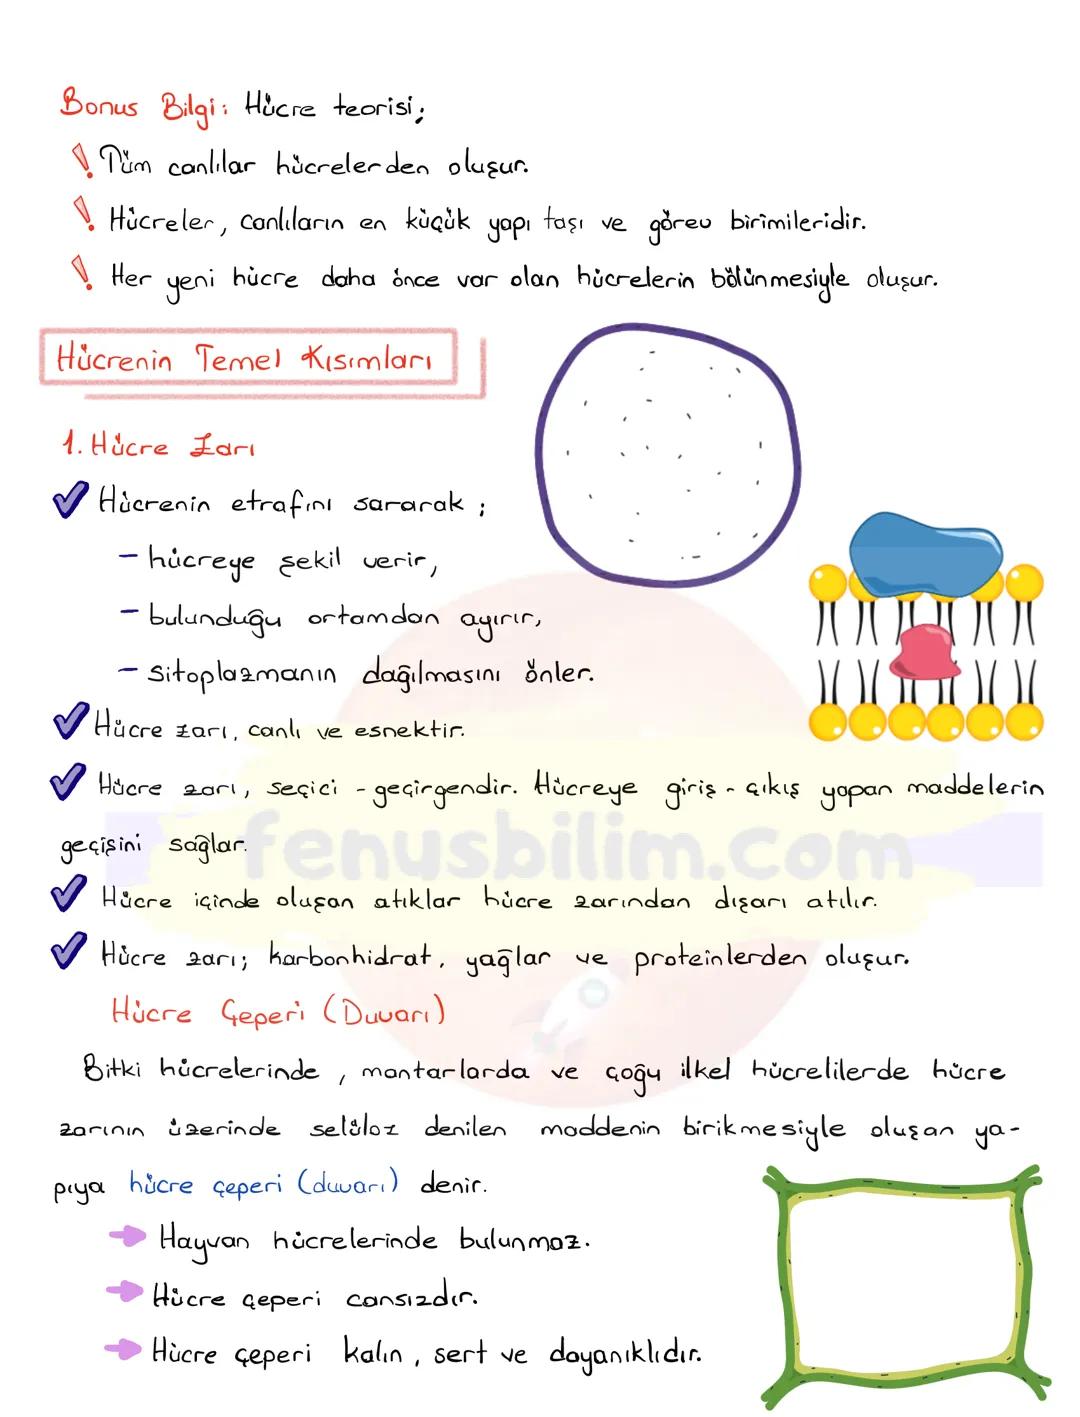 Bonus Bilgi: Hücre teorisi;
Tüm canlılar hücrelerden oluşur.
Hücreler, canlıların en küçük yapı taşı ve görev birimileridir.
Her yeni hücre daha önce var olan hücrelerin bölünmesiyle oluşur.
Hücrenin Temel Kısımları
1. Hücre Zarı
Hücrenin etrafını sararak ;
- hücreye şekil verir,
- bulunduğu ortamdan ayırır,
- sitoplazmanın dağılmasını önler.
Hücre zarı, canlı ve esnektir.
Hücre zarı, seçici - geçirgendir. Hücreye giriş - çıkış yapan maddelerin
geçişini sağlar.
fenusbilim.com
Hücre içinde oluşan atıklar hücre zarından dışarı atılır.
Hücre zarı; karbonhidrat, yağlar ve proteinlerden oluşur.
Hücre Çeperi (Duvarı)
Bitki hücrelerinde , mantarlarda ve çoğu ilkel hücrelilerde hücre
zarının üzerinde selüloz denilen maddenin birikmesiyle oluşan ya-
pıya hücre çeperi (duvarı) denir.
Hayvan hücrelerinde bulunmaz.
Hücre çeperi cansızdır.
Hücre çeperi kalın , sert ve dayanıklıdır.